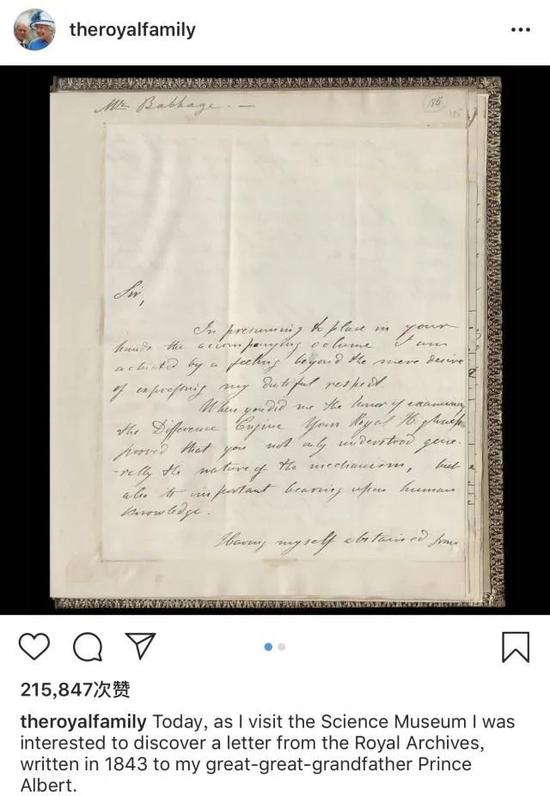 theroyalfamily
Mr. Babbage. —
186
Sir,
In presuming to place in your
hands the accompanying volume I am
actuated by a feeling beyond the mere desire
of expressing my dutiful respect.
When you did me the honor of examining
the Difference Engine Your Royal Highness
proved that you not only understood gene-
-rally the nature of the mechanism, but
also its important bearing upon human
knowledge.
Having myself abstained from
215,847次赞
theroyalfamily Today, as I visit the Science Museum I was
interested to discover a letter from the Royal Archives,
written in 1843 to my great-great-grandfather Prince
Albert.